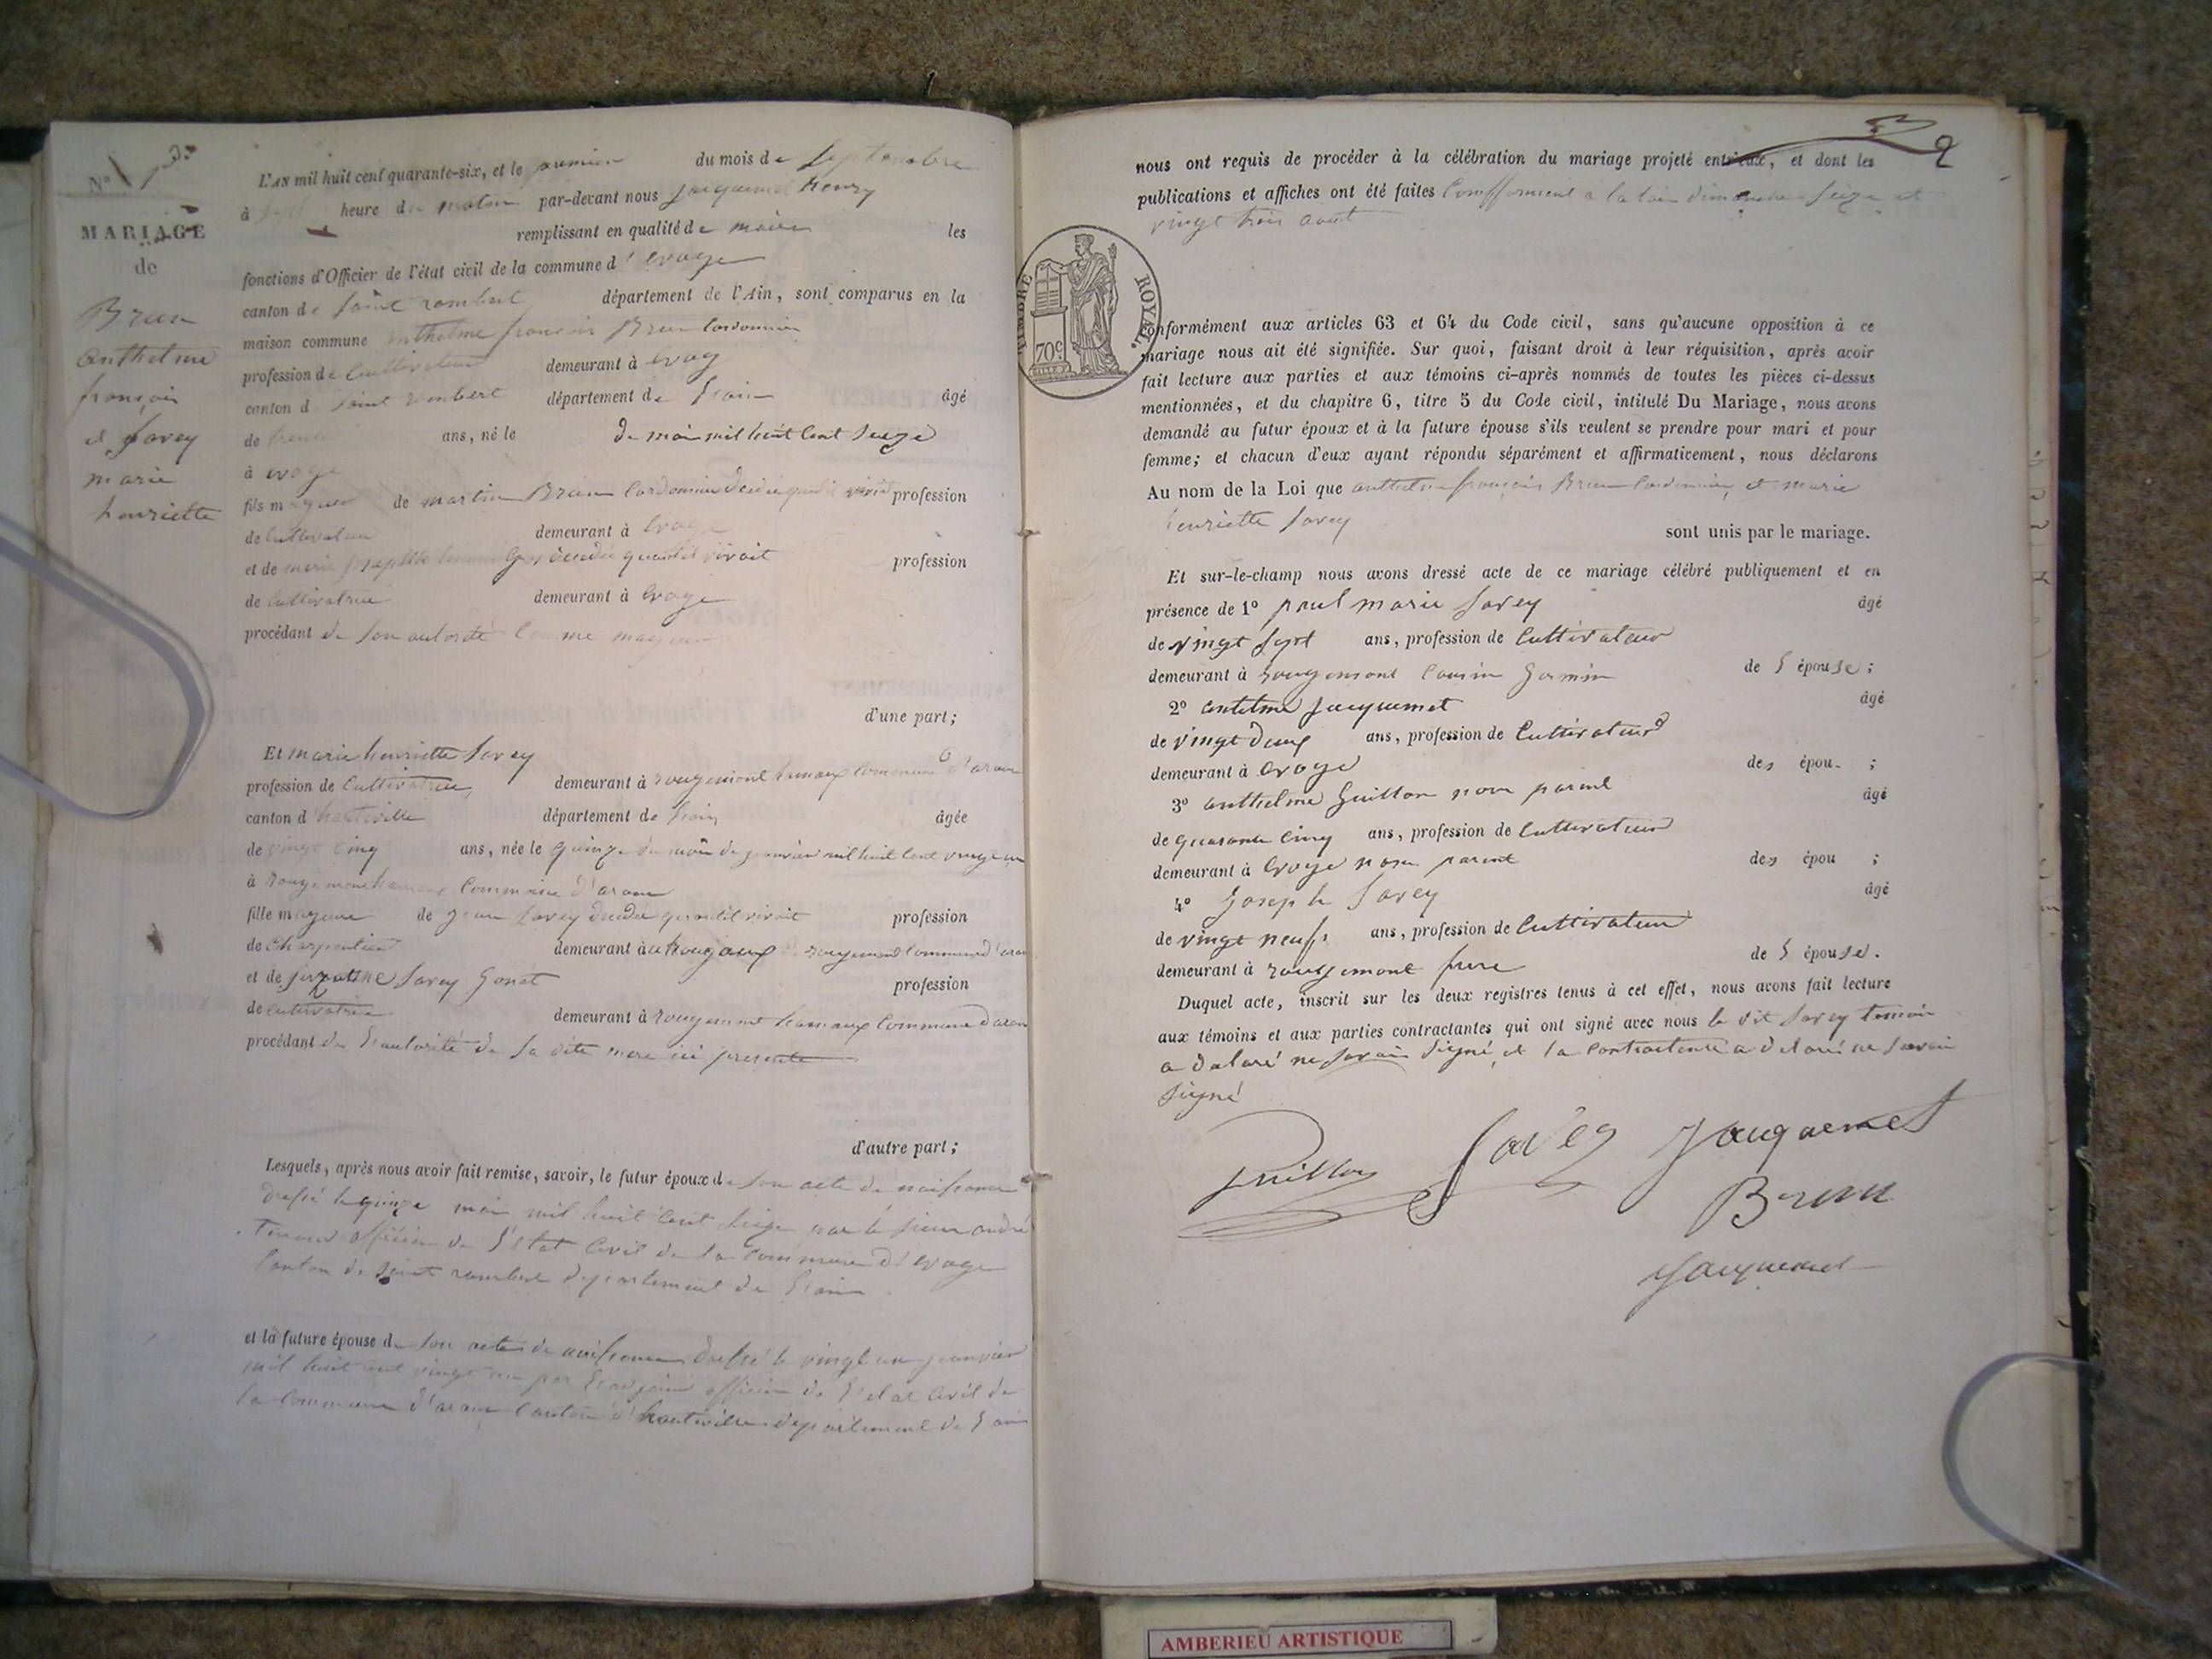 Nº 1
MARIAGE
de
Brun
anthelme
françois
et Savey
marie
henriette
L'AN mil huit cent quarante-six, et le premier du mois de septembre
à heure du matin par-devant nous jacquemet henry
remplissant en qualité de maire les
fonctions d'Officier de l'état civil de la commune d' evoge
canton de saint rambert département de l'Ain, sont comparus en la
maison commune anthelme françois Brun Cordonnier
profession de Cultivateur demeurant à evog
canton d saint rambert département de l'ain âgé
de trente ans, né le de mai mil huit Cent seize
à evoge
fils mageur de martin Brun Cordonnier décédé quand il profession
de Cultivateur demeurant à Evoge
et de marie décédée quant il vivait profession
de Cultivatrice demeurant à Evoge
procédant de son autorité Comme mageur
d'une part;
Et marie henriette Savey
profession de Cultivatrice demeurant à rougemont hamaux Commune d'aran
canton d hauteville département de l'ain âgée
de vingt Cinq ans, née le quinze du mois de janvier mil huit Cent vingt un
à rougemont Commune d'aran
fille mageure de jean Savey décédé quantil vivoit profession
de Charpentier demeurant à rougemond Commune d'aran
et de Savey Gonet profession
de Cultivatrice demeurant à rougemont hamaux Commune d'aran
procédant de l'autorité de sa dite mere ici presente
d'autre part;
Lesquels, après nous avoir fait remise, savoir, le futur époux de son acte de naissance
dressé le quinze mai mil huit Cent seize par le sieur andré
officier de l'etat Civil de la Commune d'evoge
Canton de saint rambert departement de l'ain
et la future épouse de son acte de naissance dressé le vingt un janvier
mil huit cent vingt un par officier de l'etat Civil de
la Commune d'aran Canton d'hauteville departement de l'ain
2
nous ont requis de procéder à la célébration du mariage projeté entr'eux, et dont les
publications et affiches ont été faites Confforment a la loi dimanche seize et
vingt trois aout
TIMBRE ROYAL.
70c
conformément aux articles 63 et 64 du Code civil, sans qu'aucune opposition à ce
mariage nous ait été signifiée. Sur quoi, faisant droit à leur réquisition, après avoir
fait lecture aux parties et aux témoins ci-après nommés de toutes les pièces ci-dessus
mentionnées, et du chapitre 6, titre 5 du Code civil, intitulé Du Mariage, nous avons
demandé au futur époux et à la future épouse s'ils veulent se prendre pour mari et pour
femme; et chacun d'eux ayant répondu séparément et affirmativement, nous déclarons
Au nom de la Loi que anthelme françois Brun Cordonnier, et marie
henriette Savey
sont unis par le mariage.
Et sur-le-champ nous avons dressé acte de ce mariage célébré publiquement et en
présence de 1º paul marie Savey âgé
de vingt sept ans, profession de Cultivateur
demeurant à rougemont Cousin Germin de l épouse;
2º antelme jacquemet âgé
de vingt deux ans, profession de Cultivateur
demeurant à Evoge des épou- ;
3º anthelme Guillon non parent âgé
de quarante Cinq ans, profession de Cultivateur
demeurant à Evoge non parent des épou ;
4º joseph Savey âgé
de vingt neuf ans, profession de Cultivateur
demeurant à rougemont frere de l épouse.
Duquel acte, inscrit sur les deux registres tenus à cet effet, nous avons fait lecture
aux témoins et aux parties contractantes qui ont signé avec nous le dit Savey temoin
a déclaré ne savoir signé, et la Contractente a déclaré ne savoir
signé
Guillon Savey Jacquemet
Brun
Jacquemet
AMBERIEU ARTISTIQUE